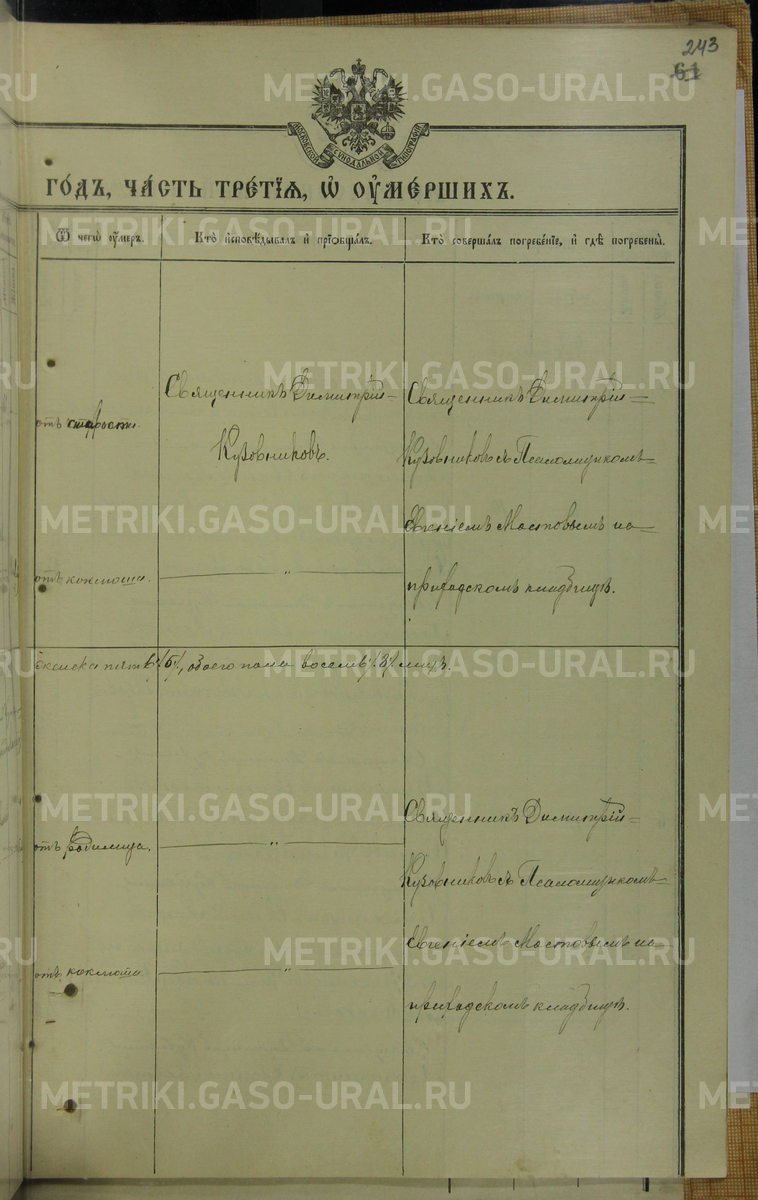 243
61
МОСКОВСКОЙ СѴНОДАЛЬНОЙ ТИПОГРАФІИ
ГО́ДЪ, ЧА́СТЬ ТРЕ́ТЇѦ, Ѡ҆ ОУ҆МЕ́РШИХЪ.
Ѿ чегѡ̀ оу҆́меръ.
Кто̀ и҆сповѣ́дывалъ и҆ прїѡбща́лъ.
Кто̀ соверша́лъ погребе́нїе, и҆ гдѣ̀ погребены̀.
отъ старости.
Священникъ Димитрій
Кузовниковъ.
Священникъ Димитрій
Кузовниковъ съ Псаломщикомъ
Евгеніемъ Мостовымъ на
приходскомъ кладбищѣ.
отъ коклюша. „
женска пять /5/, обоего пола восемь /8/ лицъ.
отъ родимца. „
Священникъ Димитрій
Кузовниковъ съ Псаломщикомъ
Евгеніемъ Мостовымъ на
приходскомъ кладбищѣ.
отъ коклюша „
METRIKI.GASO-URAL.RU